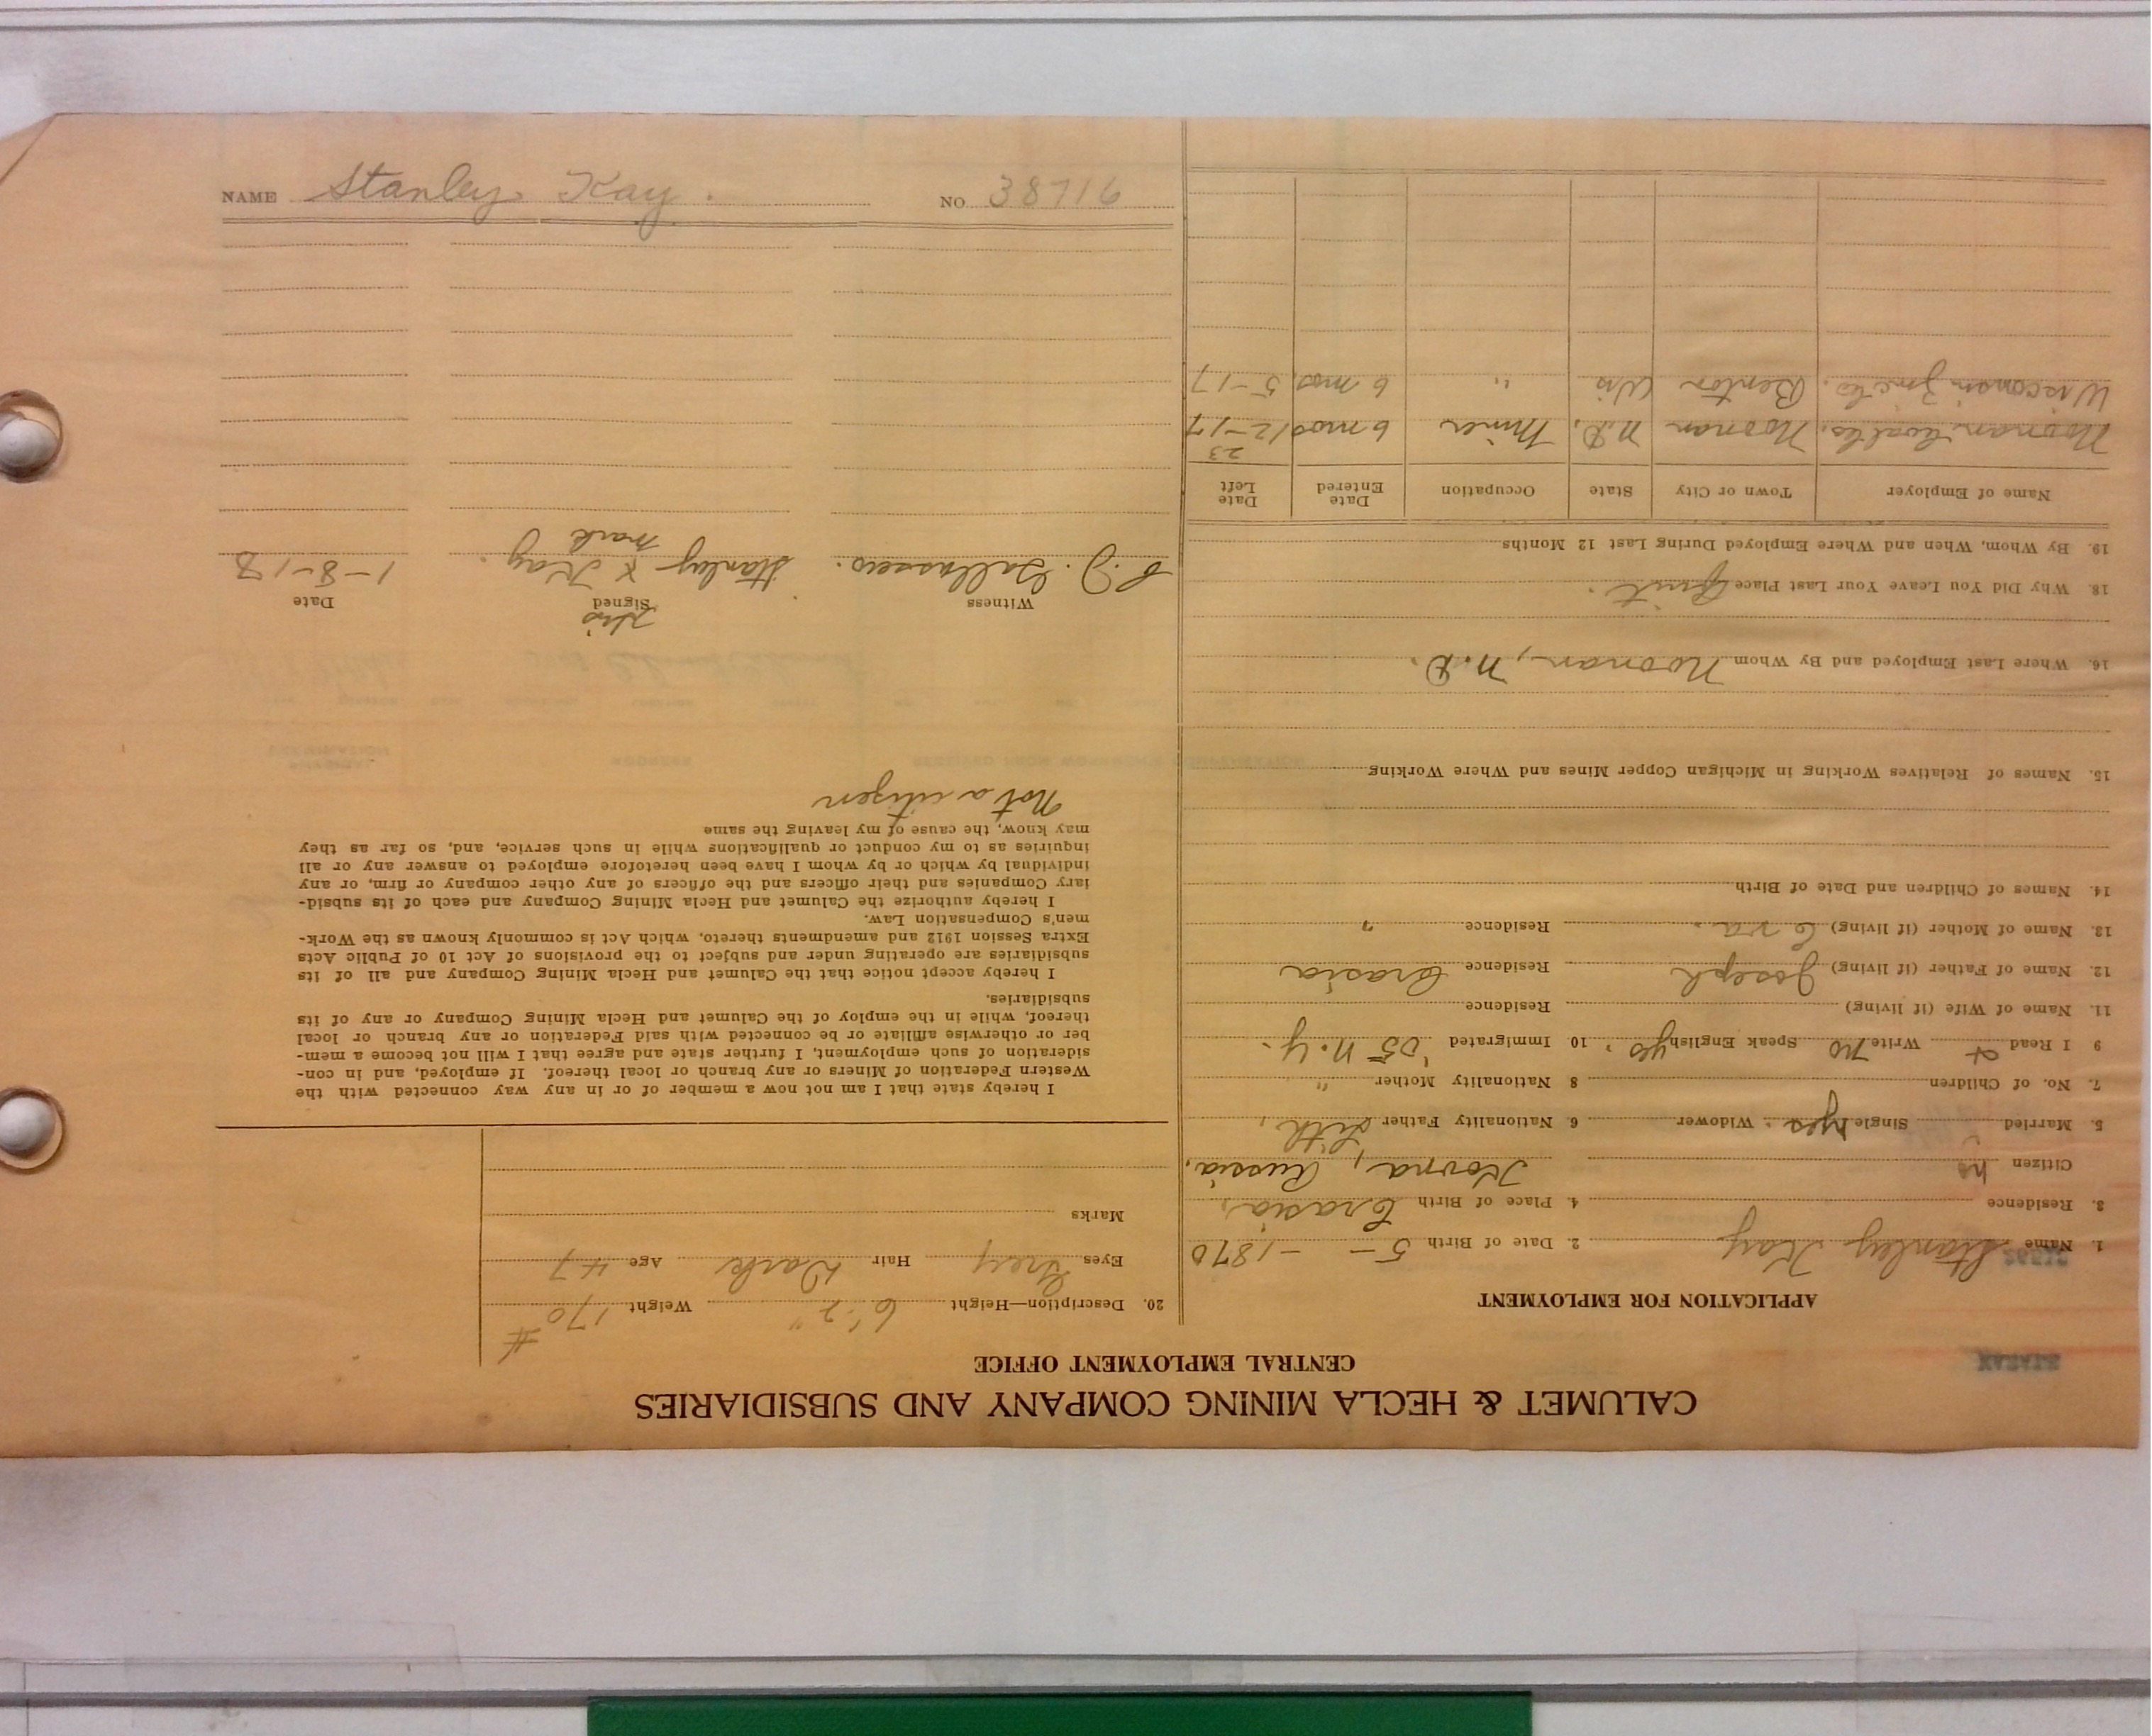 CALUMET & HECLA MINING COMPANY AND SUBSIDIARIES
CENTRAL EMPLOYMENT OFFICE
APPLICATION FOR EMPLOYMENT
1. Name Stanley Kay 2. Date of Birth 5 - - 1870
3. Residence 4. Place of Birth Crasia,
Citizen no Kovna, Russia.
5. Married Single yes. Widower 6. Nationality Father Lith,
7. No. of Children 8 Nationality Mother "
9 I Read Write no Speak English yes, 10 Immigrated '05 N.Y.
11. Name of Wife (if living) Residence
12. Name of Father (if living) Joseph Residence Crasia
13. Name of Mother (if living) Eva, Residence "
14. Names of Children and Date of Birth
15. Names of Relatives Working in Michigan Copper Mines and Where Working
16. Where Last Employed and By Whom Noonan, N.D.
18. Why Did You Leave Your Last Place Quit.
19. By Whom, When and Where Employed During Last 12 Months
Name of Employer Town or City State Occupation Date Entered Date Left
Noonan Coal Co. Noonan N.D. Miner 6 mos 12-23-17
Wisconsin Zinc Co. Benton Wis " 6 mos. 5-17
20. Description—Height 6' 2" Weight 170 #
Eyes Grey Hair Dark Age 47
Marks
I hereby state that I am not now a member of or in any way connected with the
Western Federation of Miners or any branch or local thereof. If employed, and in con-
sideration of such employment, I further state and agree that I will not become a mem-
ber or otherwise affiliate or be connected with said Federation or any branch or local
thereof, while in the employ of the Calumet and Hecla Mining Company or any of its
subsidiaries.
I hereby accept notice that the Calumet and Hecla Mining Company and all of its
subsidiaries are operating under and subject to the provisions of Act 10 of Public Acts
Extra Session 1912 and amendments thereto, which Act is commonly known as the Work-
men's Compensation Law.
I hereby authorize the Calumet and Hecla Mining Company and each of its subsid-
iary Companies and their officers and the officers of any other company or firm, or any
individual by which or by whom I have been heretofore employed to answer any or all
inquiries as to my conduct or qualifications while in such service, and, so far as they
may know, the cause of my leaving the same
Not a citizen
His
Witness Signed Date
Stanley x Kay. 1-8-18
mark
NAME Stanley Kay. NO. 38716